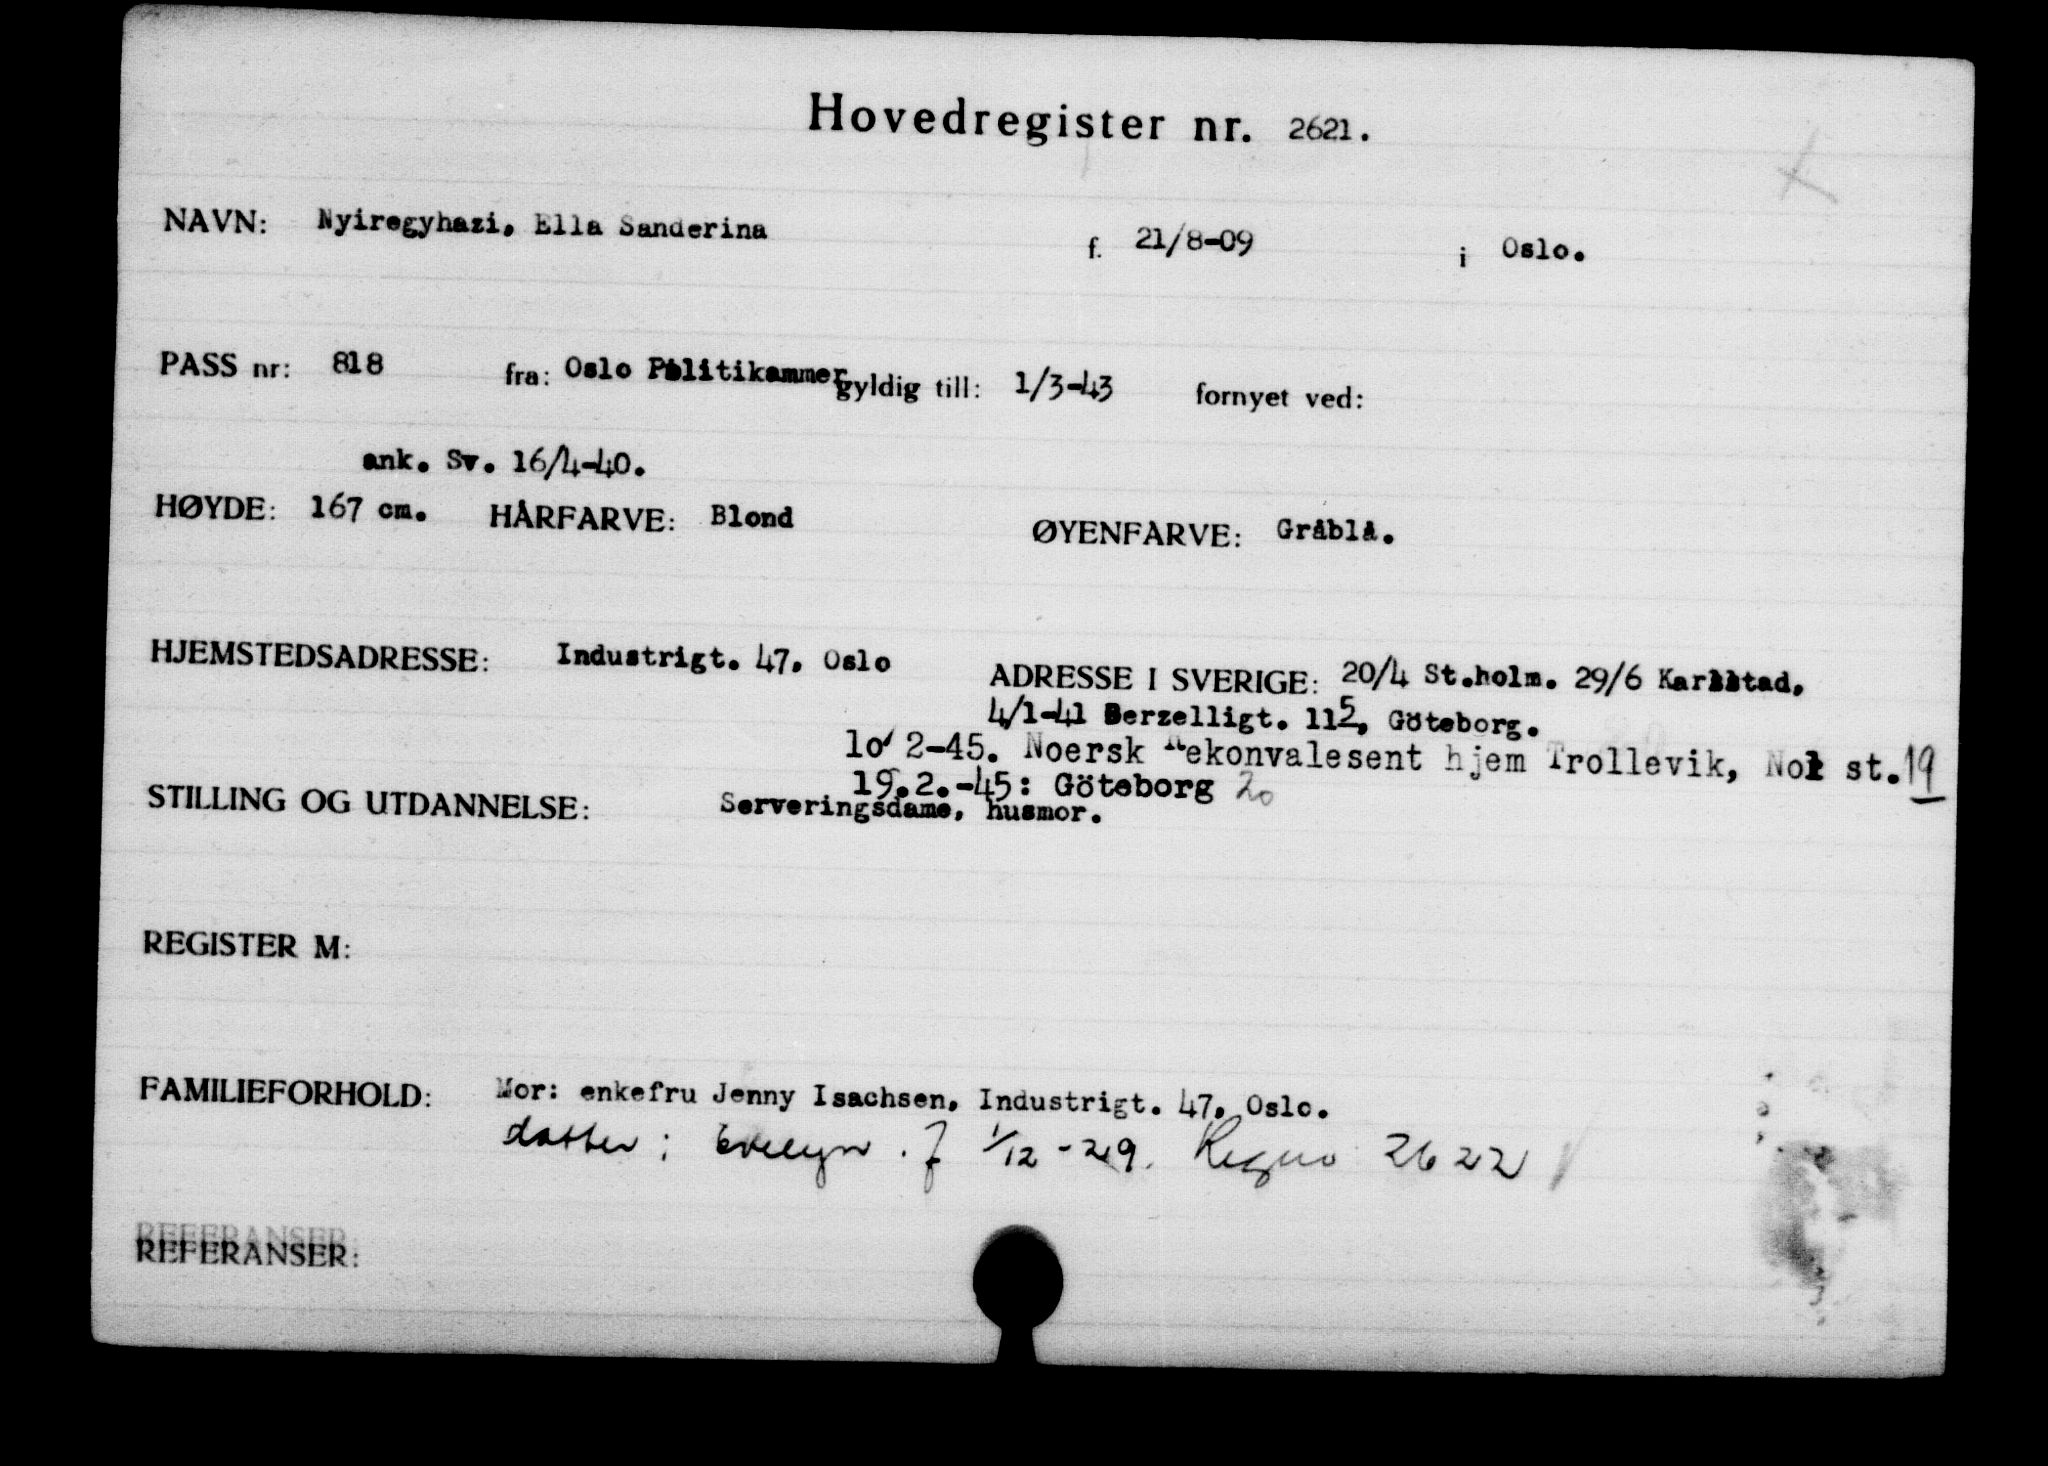 Hovedregister nr. 2621.
NAVN: Nyiregyhazi, Ella Sanderina f. 21/8-09 i Oslo.
PASS nr: 818 fra: Oslo Pólitikammer gyldig till: 1/3-43 fornyet ved:
ank. Sv. 16/4-40.
HØYDE: 167 cm. HÅRFARVE: Blond ØYENFARVE: Gråblå.
HJEMSTEDSADRESSE: Industrigt. 47, Oslo ADRESSE I SVERIGE: 20/4 St.holm. 29/6 Karlstad,
4/1-41 Berzelligt. 115, Göteborg.
10/ 2-45. Noersk Rekonvalesent hjem Trollevik, Nol st. 19
19.2.-45: Göteborg 20
STILLING OG UTDANNELSE: Serveringsdame, husmor.
REGISTER M:
FAMILIEFORHOLD: Mor: enkefru Jenny Isachsen, Industrigt. 47, Oslo.
datter: Evelyn. f 1/12-29. Regno 2622
REFERANSER: